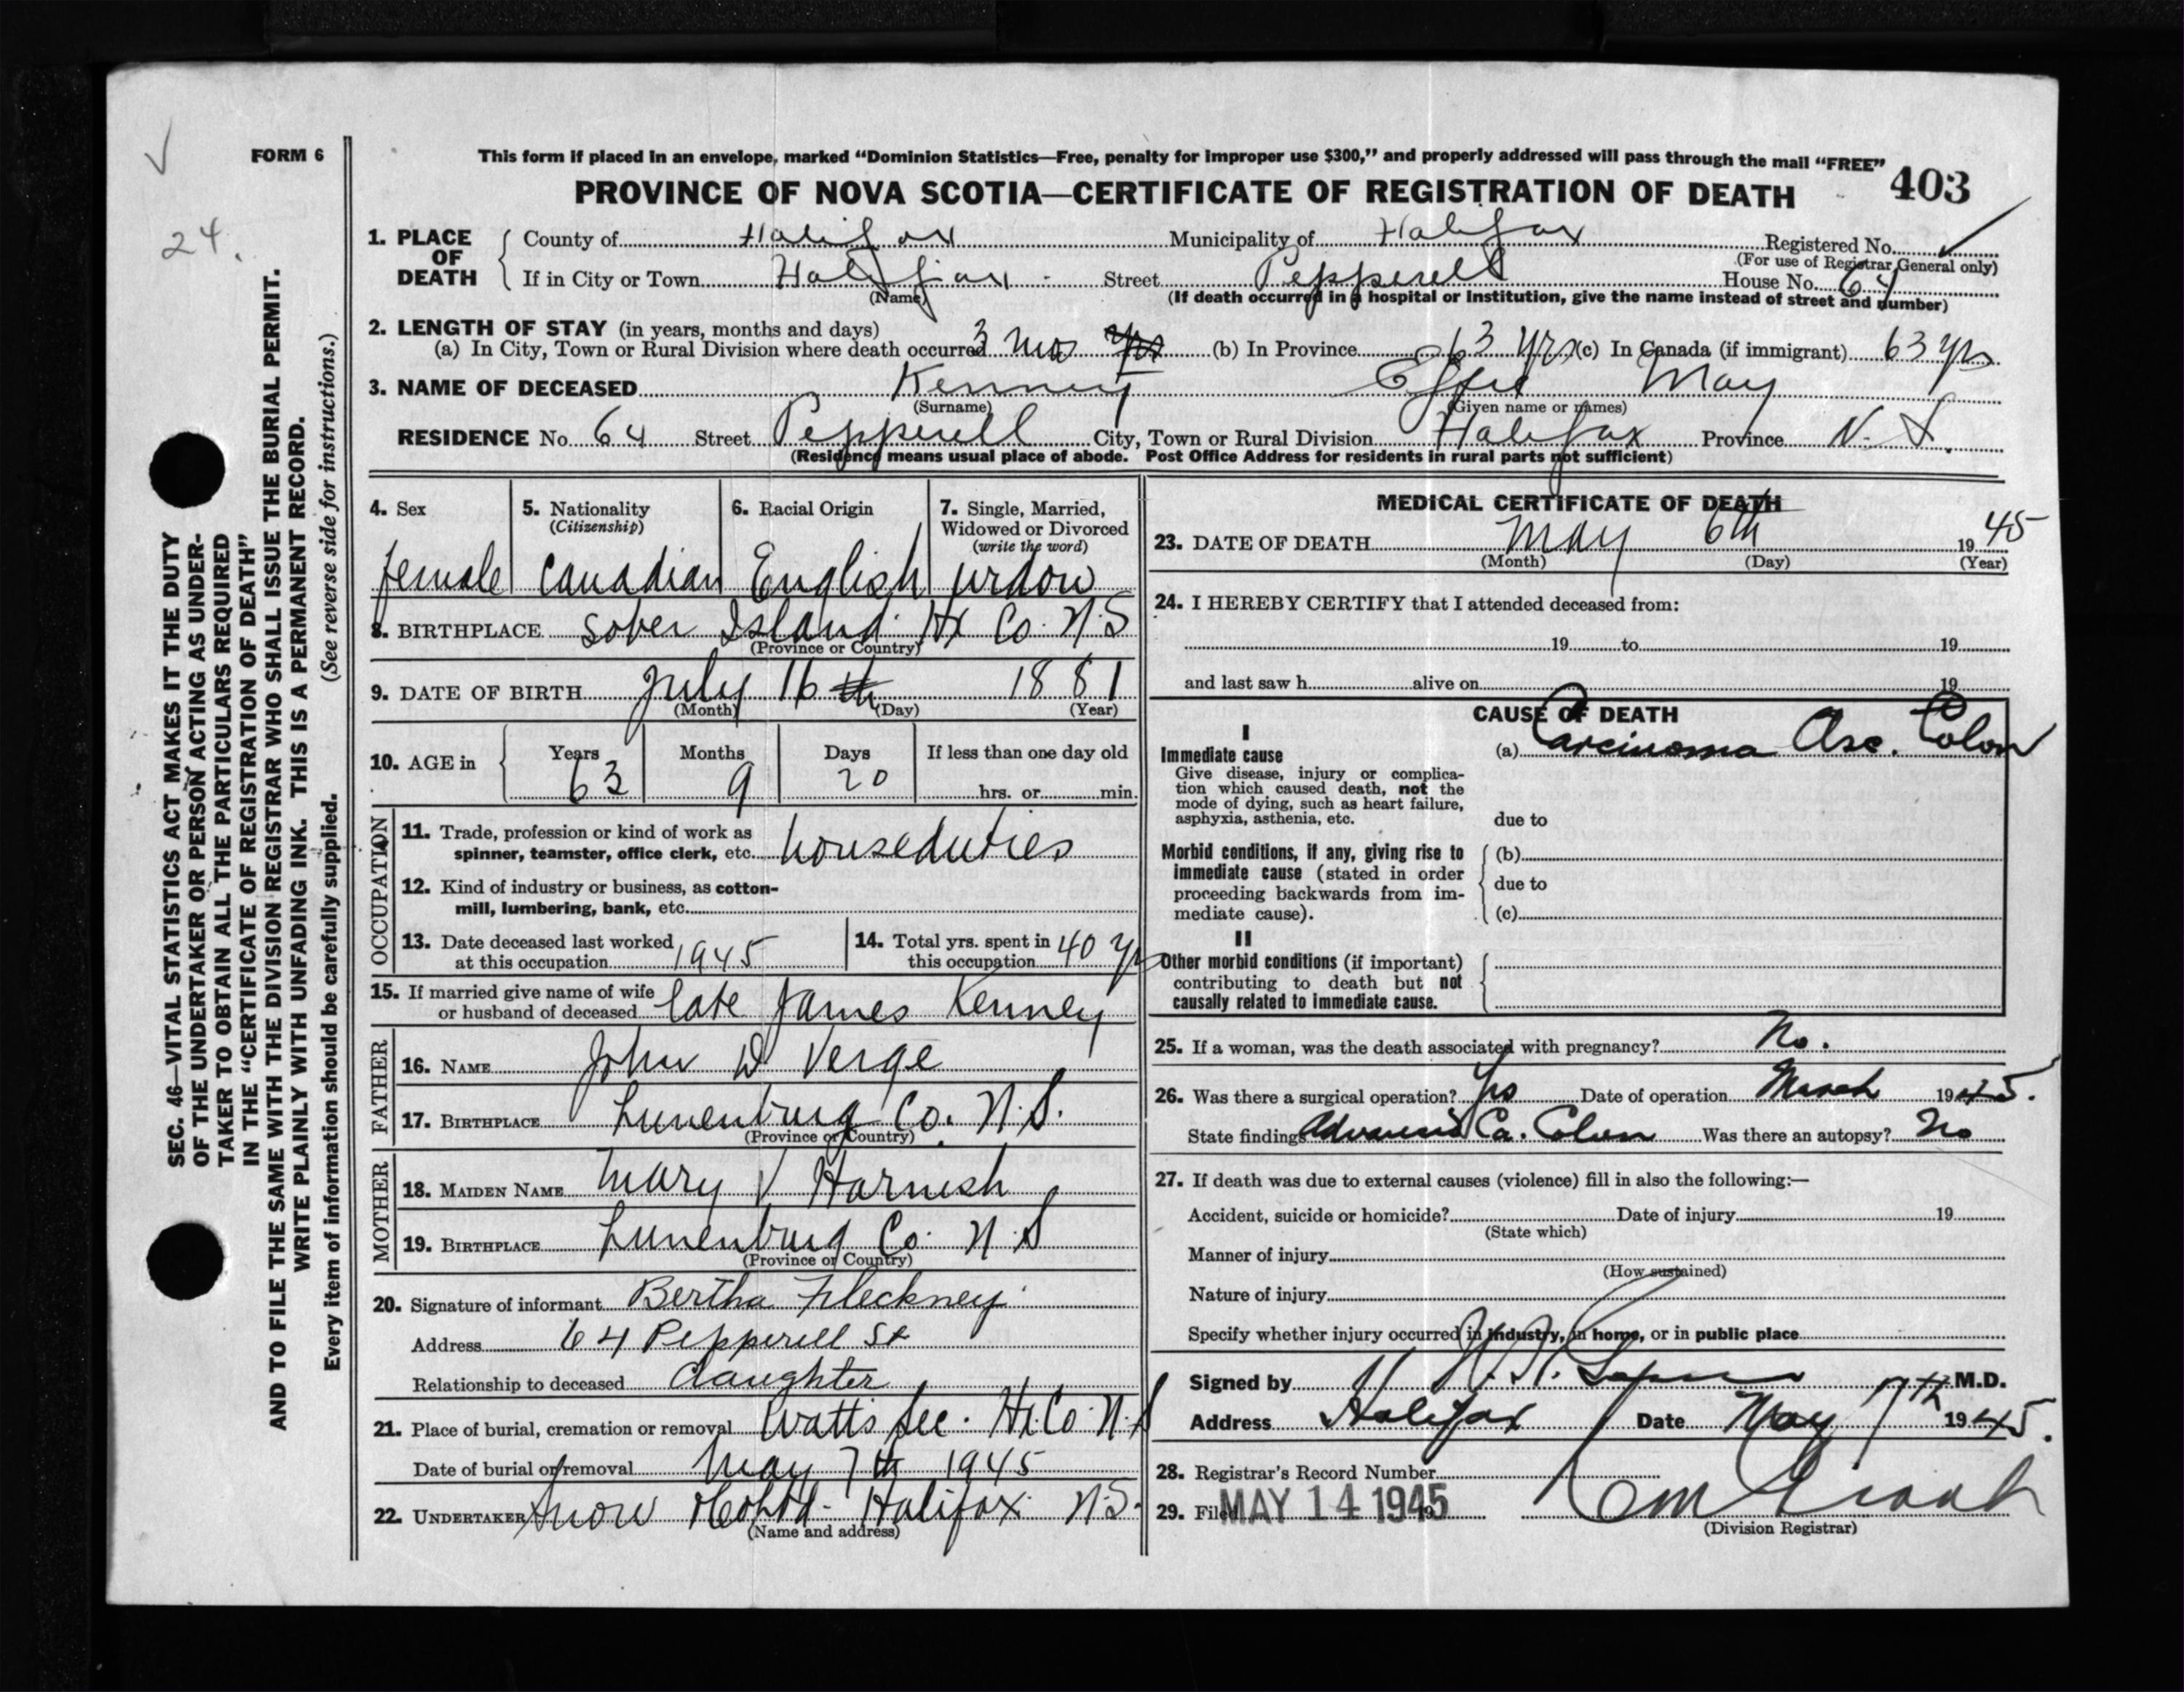 FORM 6
This form if placed in an envelope, marked “Dominion Statistics—Free, penalty for improper use $300,” and properly addressed will pass through the mail “FREE”
PROVINCE OF NOVA SCOTIA—CERTIFICATE OF REGISTRATION OF DEATH
403
24.
1. PLACE OF DEATH
County of Halifax Municipality of Halifax Registered No.
(For use of Registrar General only)
If in City or Town Halifax Street Pepperell House No. 64
(Name) (If death occurred in a hospital or institution, give the name instead of street and number)
2. LENGTH OF STAY (in years, months and days)
(a) In City, Town or Rural Division where death occurred 3 mos yrs (b) In Province 63 yrs (c) In Canada (if immigrant) 63 yrs
3. NAME OF DECEASED Kenney Effie May
(Surname) (Given name or names)
RESIDENCE No. 64 Street Pepperell City, Town or Rural Division Halifax Province N. S.
(Residence means usual place of abode. Post Office Address for residents in rural parts not sufficient)
4. Sex 5. Nationality (Citizenship) 6. Racial Origin 7. Single, Married, Widowed or Divorced (write the word)
female canadian English widow
8. BIRTHPLACE Sober Island Hx Co. N.S
(Province or Country)
9. DATE OF BIRTH July 16 th 1881
(Month) (Day) (Year)
10. AGE in Years Months Days If less than one day old
63 9 20 hrs. or min.
OCCUPATION
11. Trade, profession or kind of work as
spinner, teamster, office clerk, etc. houseduties
12. Kind of industry or business, as cotton-
mill, lumbering, bank, etc.
13. Date deceased last worked at this occupation 1945 14. Total yrs. spent in this occupation 40 yrs
15. If married give name of wife
or husband of deceased late James Kenney
FATHER
16. NAME John W Verge
17. BIRTHPLACE Lunenburg Co. N.S.
(Province or Country)
MOTHER
18. MAIDEN NAME Mary V Harnish
19. BIRTHPLACE Lunenburg Co. N.S
(Province or Country)
20. Signature of informant Bertha Fleckney
Address 64 Pepperell St
Relationship to deceased daughter
21. Place of burial, cremation or removal Watts Sec. Hx Co. N.S
Date of burial or removal May 7th 1945
22. UNDERTAKER Snow & Co Ltd. Halifax N.S.
(Name and address)
MEDICAL CERTIFICATE OF DEATH
23. DATE OF DEATH May 6th 1945
(Month) (Day) (Year)
24. I HEREBY CERTIFY that I attended deceased from:
19 to 19
and last saw h alive on 19
CAUSE OF DEATH
I
Immediate cause (a) Carcinoma Asc. Colon
Give disease, injury or complica-
tion which caused death, not the
mode of dying, such as heart failure,
asphyxia, asthenia, etc. due to
Morbid conditions, if any, giving rise to (b)
immediate cause (stated in order due to
proceeding backwards from im-
mediate cause). (c)
II
Other morbid conditions (if important)
contributing to death but not
causally related to immediate cause.
25. If a woman, was the death associated with pregnancy? No.
26. Was there a surgical operation? Yes Date of operation March 1945.
State findings Advanced Ca. Colon Was there an autopsy? No
27. If death was due to external causes (violence) fill in also the following:—
Accident, suicide or homicide? Date of injury 19
(State which)
Manner of injury
(How sustained)
Nature of injury
Specify whether injury occurred in industry, in home, or in public place
Signed by M.D.
Address Halifax Date May 7th 1945.
28. Registrar's Record Number
29. Filed MAY 14 1945 19
(Division Registrar)
SEC. 46—VITAL STATISTICS ACT MAKES IT THE DUTY
OF THE UNDERTAKER OR PERSON ACTING AS UNDER-
TAKER TO OBTAIN ALL THE PARTICULARS REQUIRED
IN THE “CERTIFICATE OF REGISTRATION OF DEATH”
AND TO FILE THE SAME WITH THE DIVISION REGISTRAR WHO SHALL ISSUE THE BURIAL PERMIT.
WRITE PLAINLY WITH UNFADING INK. THIS IS A PERMANENT RECORD.
Every item of information should be carefully supplied. (See reverse side for instructions.)